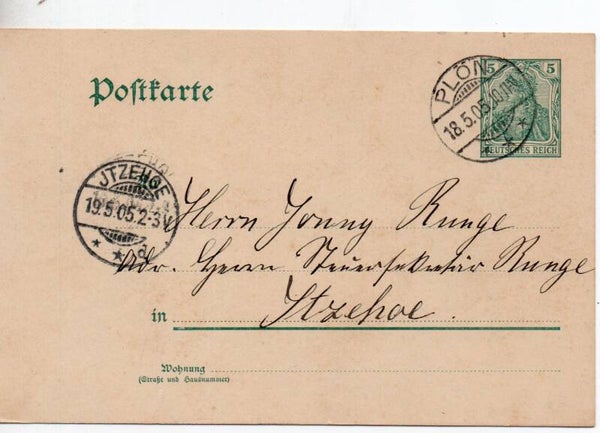 5 5
DEUTSCHES REICH
PLÖN
18.5.05.
Postkarte
JTZEHOE
19.5.05.2-3V
Herrn Jonny Runge
Adr. Herrn Steuersekretär Runge
in Itzehoe.
Wohnung
(Straße und Hausnummer)